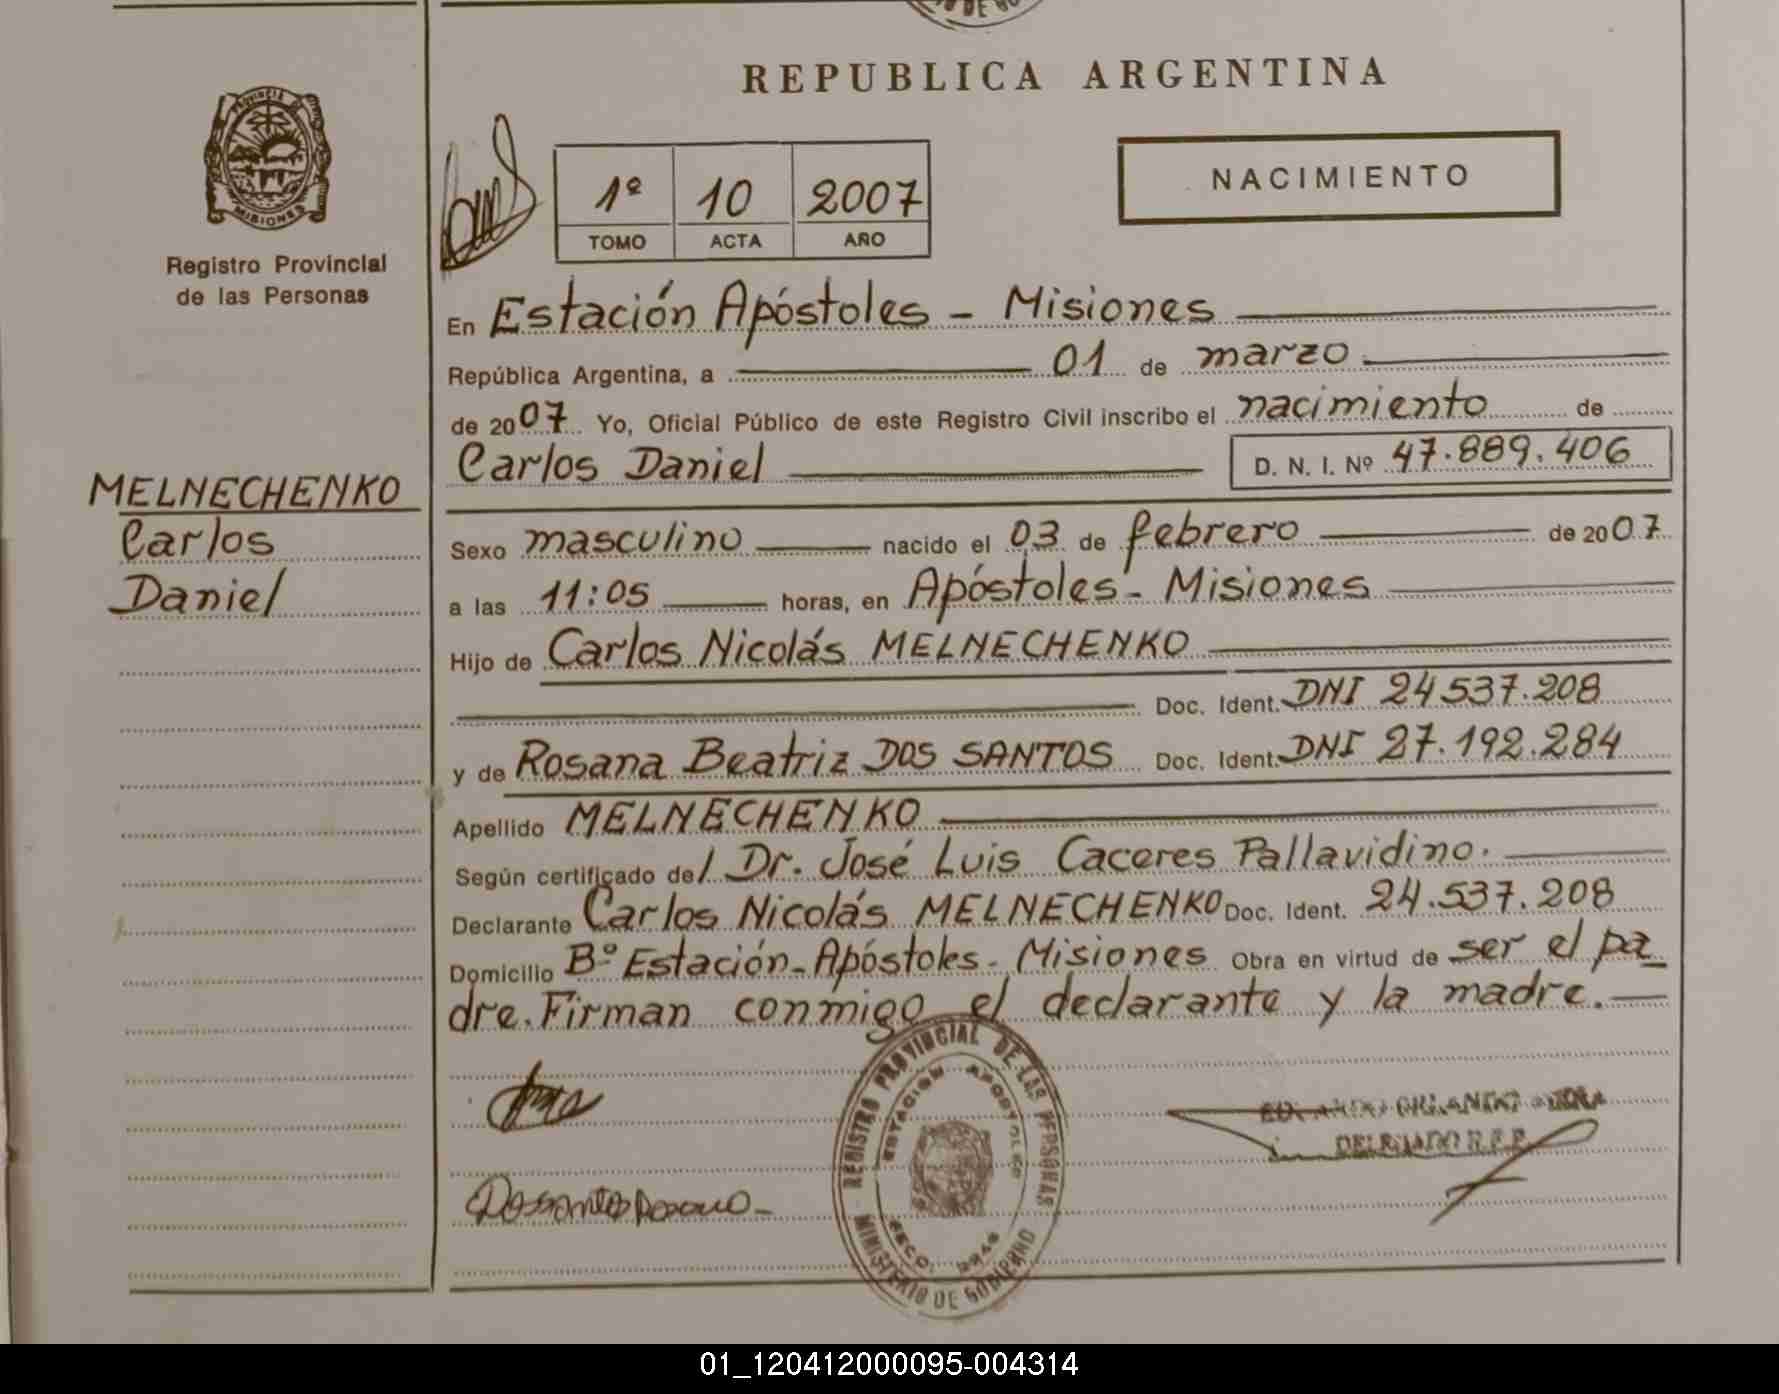 REPUBLICA ARGENTINA
PROVINCIA DE
MISIONES
Registro Provincial
de las Personas
1º 10 2007
TOMO ACTA AÑO
NACIMIENTO
En Estación Apóstoles - Misiones
República Argentina, a 01 de marzo
de 2007 Yo, Oficial Público de este Registro Civil inscribo el nacimiento de
Carlos Daniel D. N. I. Nº 47.889.406
MELNECHENKO
Carlos
Daniel
Sexo masculino nacido el 03 de febrero de 2007
a las 11:05 horas, en Apóstoles - Misiones
Hijo de Carlos Nicolás MELNECHENKO
Doc. Ident. DNI 24537.208
y de Rosana Beatriz DOS SANTOS Doc. Ident. DNI 27.192.284
Apellido MELNECHENKO
Según certificado del Dr. José Luis Caceres Pallavidino.
Declarante Carlos Nicolás MELNECHENKO Doc. Ident. 24.537.208
Domicilio Bº Estación - Apóstoles - Misiones Obra en virtud de ser el pa
dre. Firman conmigo el declarante y la madre.
REGISTRO PROVINCIAL DE LAS PERSONAS
MINISTERIO DE GOBIERNO
ESTACION APOSTOLES
ORLANDO
Dossantos Rosana
01_120412000095-004314